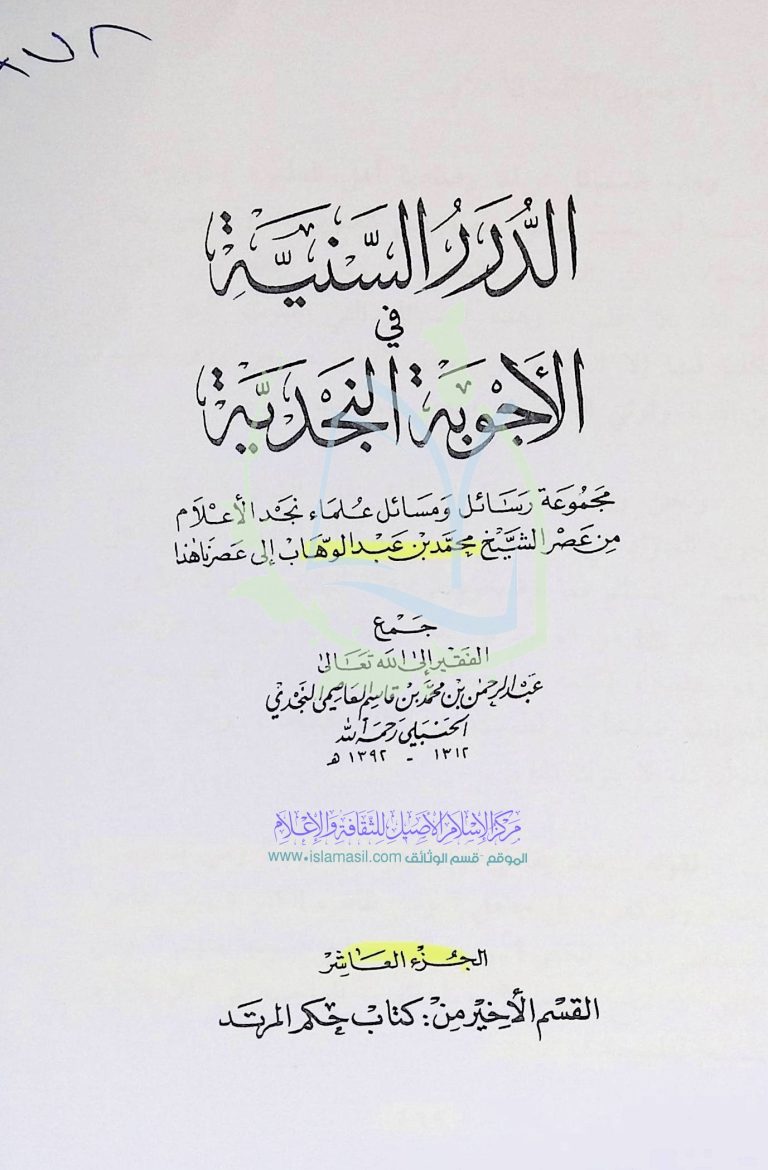 ٧٨
الدُّرَرُ السَّنِيَّة
في
الأَجْوِبَةِ النَّجْدِيَّة
مَجْمُوعَة رَسَائل وَمَسَائل عُلمَاء نجد الأعْلَام
مِن عَصْر الشَّيْخ محمَّد بْن عَبْد الوهَّاب إلى عَصرنا هٰذا
جَمع
الفَقير إلى الله تَعَالى
عَبْد الرحمٰن بن محمَّد بن قاسِم العاصِمي النَّجْدي
الحَنبَلي رَحمَه الله
١٣١٢ - ١٣٩٢ هـ
مركز الإسلام الأصيل للثقافة والإعلام
الموقع - قسم الوثائق www.islamasil.com
الجُزء العَاشِر
القسْم الأخِير مِنْ: كتَاب حُكم المرتَد